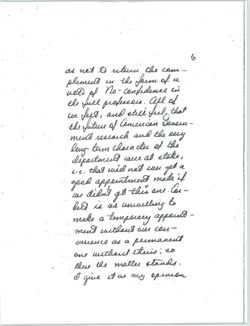 6
as not to return the com-
plement in the form of a
vote of No-confidence in
the full professors. All of
us felt, and still feel, that
the future of American Govern-
ment research and the very
long term character of the
department were at stake,
i.e. that we'd not ever get a
good appointment made if
we didn't get this one. Cor-
bett is as unwilling to
make a temporary appoint-
ment without our con-
currence as a permanent
one without theirs; so
thus the matter stands.
I give it as my opinion